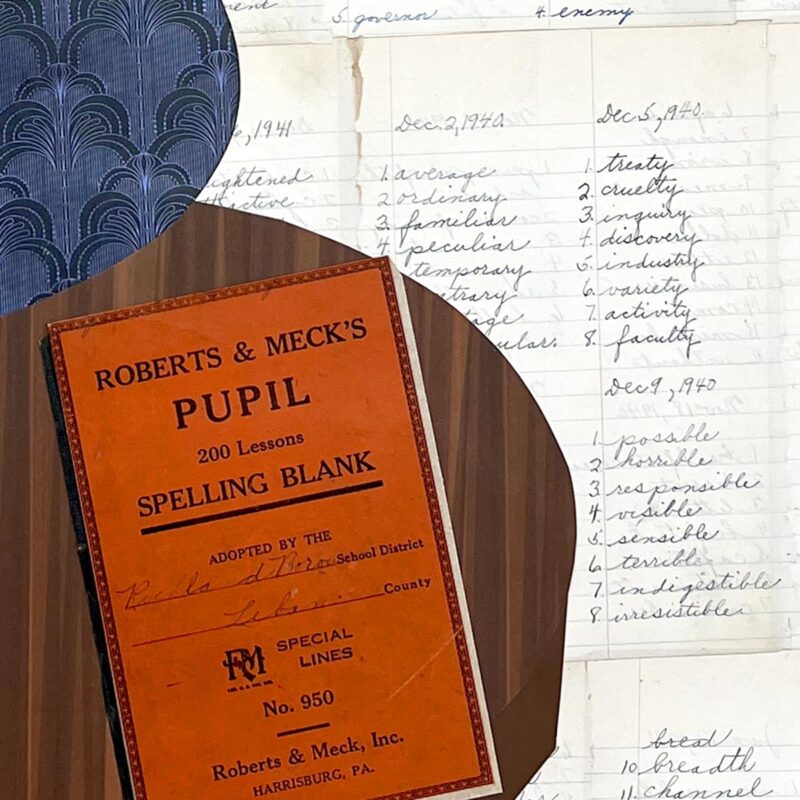 5. governor
4. enemy
, 1941
ightened
Dec. 2, 1940
1. average
2 ordinary
3. familiar
4. peculiar
temporary
Dec. 5, 1940.
1. treaty
2. cruelty
3. inquiry
4. discovery
5. industry
6. variety
7. activity
8. faculty
Dec 9, 1940
1. possible
2 horrible
3 responsible
4. visible
5. sensible
6 terrible
7 indigestible
8. irresistible
bread
10 breadth
11. channel
ROBERTS & MECK'S
PUPIL
200 Lessons
SPELLING BLANK
ADOPTED BY THE
School District
County
RM SPECIAL
LINES
No. 950
Roberts & Meck, Inc.
HARRISBURG, PA.